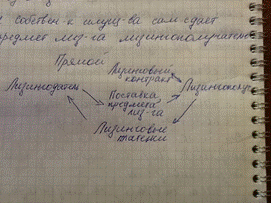 и собствен-к имущ-ва сам сдает
предмет лиз-га лизингополучателю
Прямой
Лизинговый
контракт
Лизингодатель
Поставка
предмета
лиз-га
Лизинговые
платежи